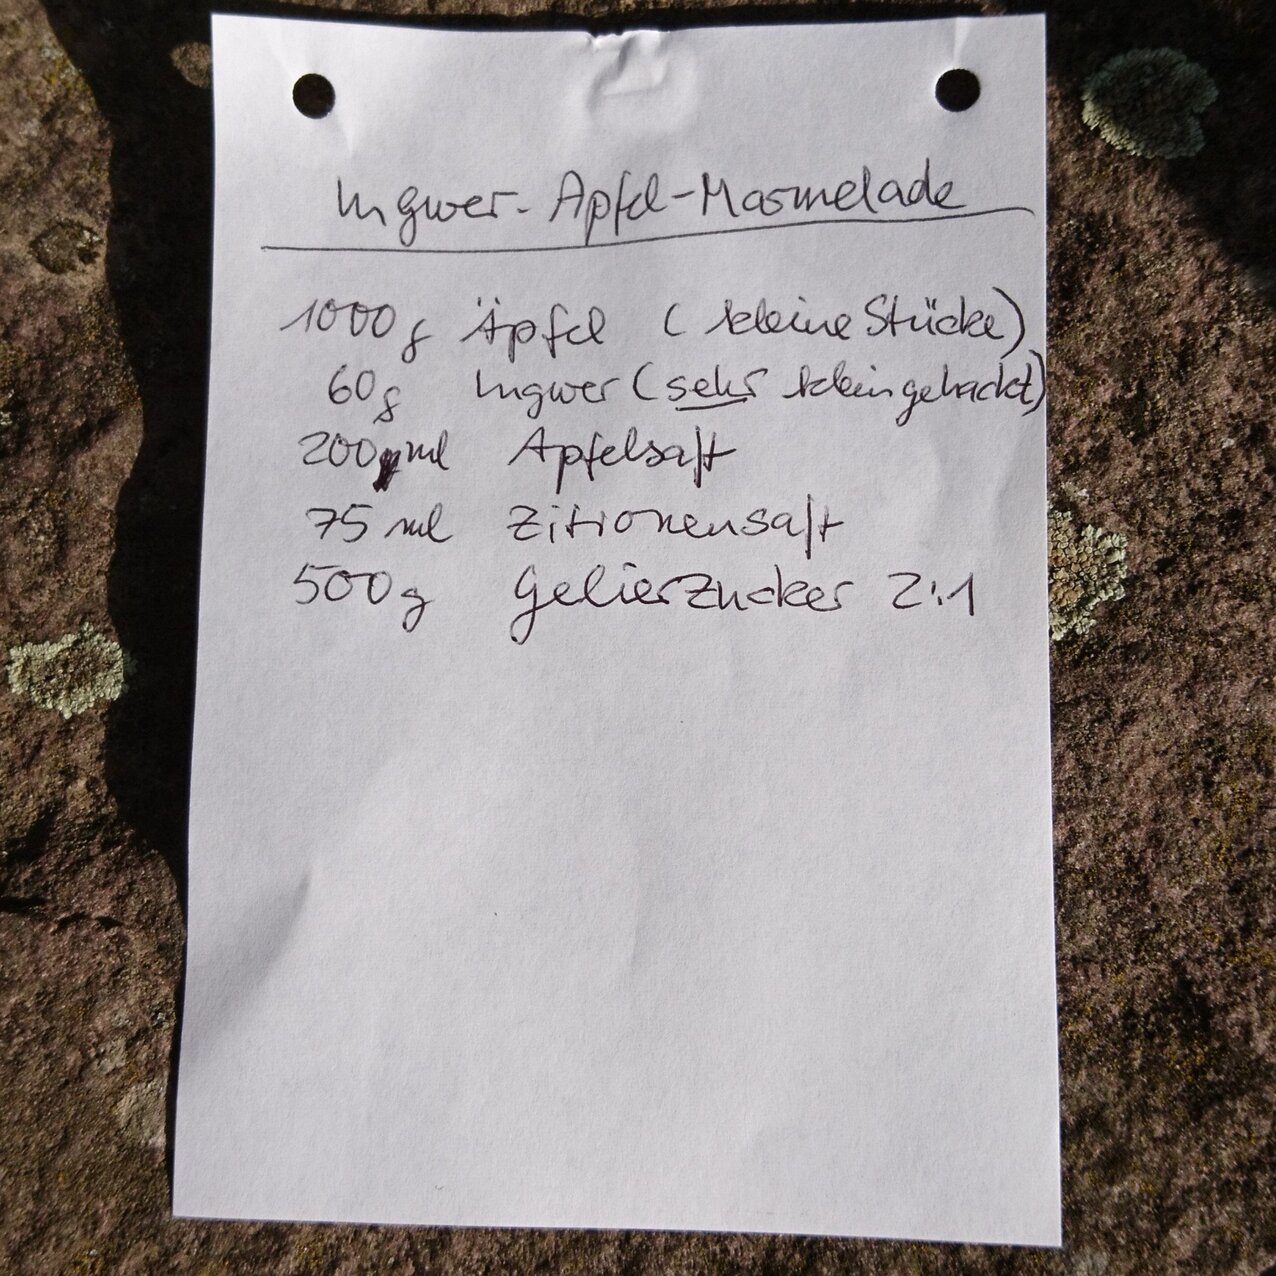 Ingwer-Apfel-Marmelade
1000g Äpfel (kleine Stücke)
60g Ingwer (sehr kleingehackt)
200 ml Apfelsaft
75 ml Zitronensaft
500g Gelierzucker 2:1